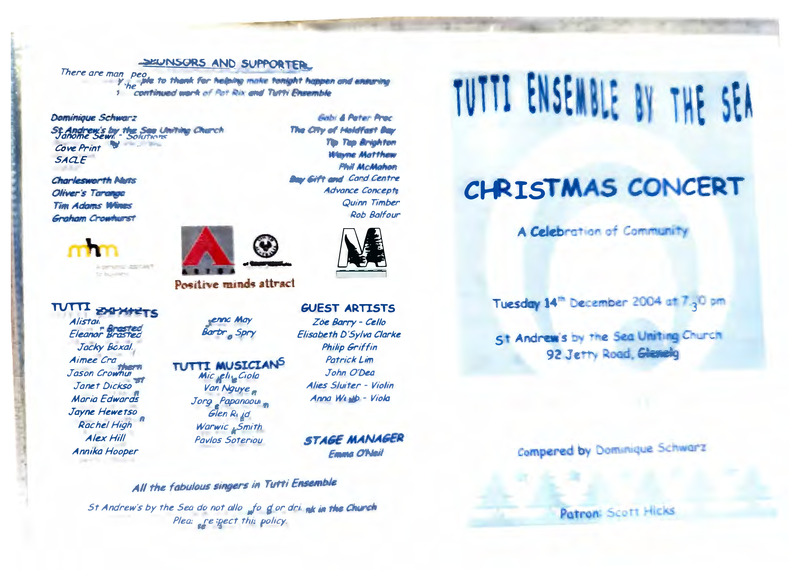 SPONSORS AND SUPPORTER
There are man peo
ple to thank for helping make tonight happen and ensuring
y he
continued work of Pat Rix and Tutti Ensemble
Dominique Schwarz
St Andrew's by the Sea Uniting Church
Janome Sewi - Solutions
Cove Print
SACLE
Charlesworth Nuts
Oliver's Taranga
Tim Adams Wines
Graham Crowhurst
Gabi & Peter Proc
The City of Holdfast Bay
Tip Top Brighton
Wayne Matthew
Phil McMahon
Bay Gift and Card Centre
Advance Concepts
Quinn Timber
Rob Balfour
mhm
ARTSA
Positive minds attract
M
TUTTI
Alistai
r Brasted
Eleanor Brasted
Jacky Boxal
Aimee Cra
thern
Jason Crowhur
st
Janet Dickso
n
Maria Edwards
Jayne Hewetso
n
Rachel High
Alex Hill
Annika Hooper
Jenna May
Barbr a Spry
TUTTI MUSICIANS
Mic eli Ciola
Van Nguye n
Jorg Papanaou
Glen R d
Warwic Smith
Pavlos Soteriou
GUEST ARTISTS
Zoe Barry - Cello
Elisabeth D'Sylva Clarke
Philip Griffin
Patrick Lim
John O'Dea
Alies Sluiter - Violin
Anna W b - Viola
STAGE MANAGER
Emma O'Neil
All the fabulous singers in Tutti Ensemble
St Andrew's by the Sea do not allo w fo d or dri nk in the Church
Pleas re spect this policy.
TUTTI ENSEMBLE BY THE SEA
CHRISTMAS CONCERT
A Celebration of Community
Tuesday 14th December 2004 at 7.30 pm
St Andrew's by the Sea Uniting Church
92 Jetty Road, Glenelg
Compered by Dominique Schwarz
Patron: Scott Hicks